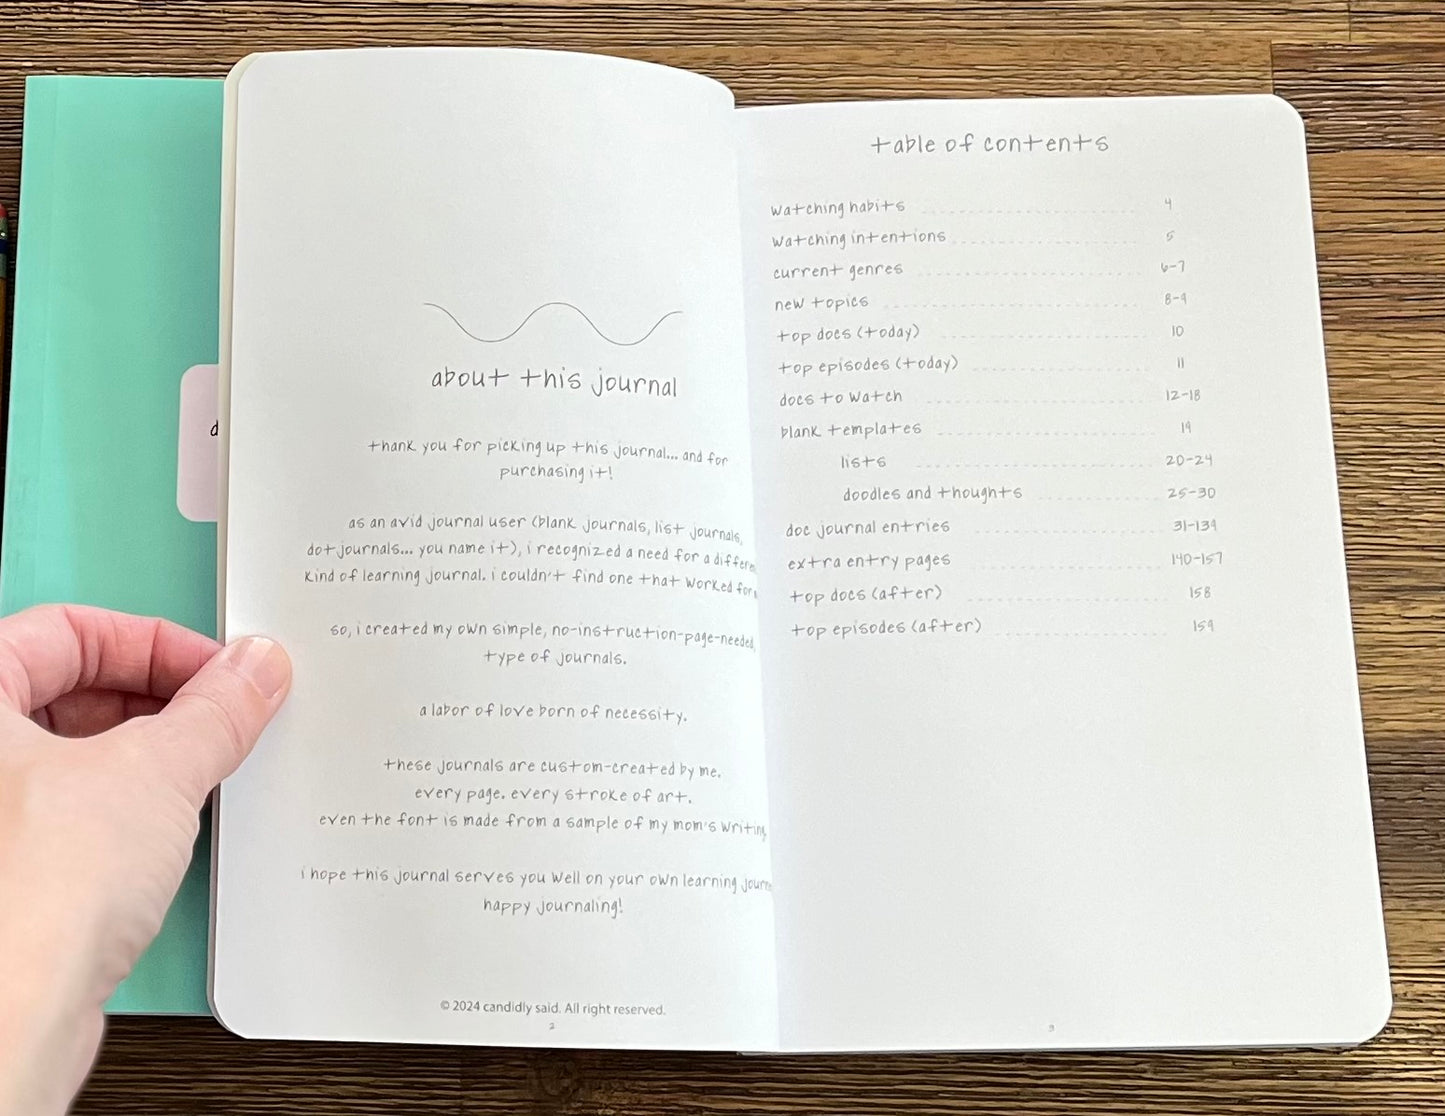 about this journal
thank you for picking up this journal... and for
purchasing it!
as an avid journal user (blank journals, list journals,
dot journals... you name it), i recognized a need for a
kind of learning journal. i couldn't find one that worked for
so, i created my own simple, no-instruction-page-needed,
type of journals.
a labor of love born of necessity.
these journals are custom-created by me.
every page. every stroke of art.
even the font is made from a sample of my mom's writing.
i hope this journal serves you well on your own learning
happy journaling!
© 2024 candidly said. All right reserved.
2
table of contents
watching habits 4
watching intentions 5
current genres 6-7
new topics 8-9
top docs (today) 10
top episodes (today) 11
docs to watch 12-18
blank templates 19
lists 20-24
doodles and thoughts 25-30
doc journal entries 31-139
extra entry pages 140-157
top docs (after) 158
top episodes (after) 159
3